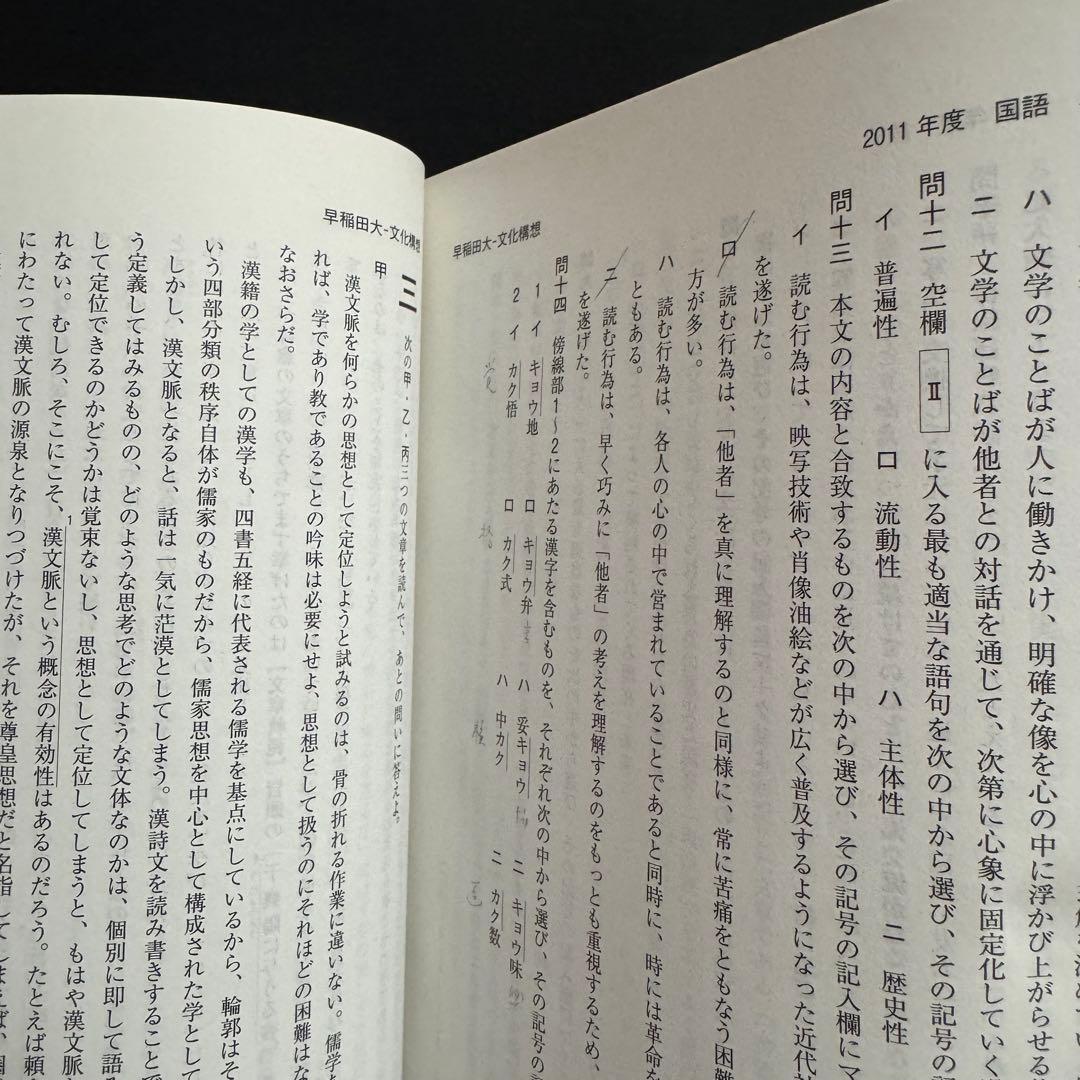 2011年度　国語
ハ　文学のことばが人に働きかけ、明確な像を心の中に浮かび上がらせる
ニ　文学のことばが他者との対話を通じて、次第に心象に固定化していく
問十二　空欄 Ⅱ に入る最も適当な語句を次の中から選び、その記号の
イ　普遍性　ロ　流動性　ハ　主体性　ニ　歴史性
問十三　本文の内容と合致するものを次の中から選び、その記号の記入欄にマ
イ　読む行為は、映写技術や肖像油絵などが広く普及するようになった近代
を遂げた。
ロ　読む行為は、「他者」を真に理解するのと同様に、常に苦痛をともなう困難
方が多い。
ハ　読む行為は、各人の心の中で営まれていることであると同時に、時には革命を
ともある。
ニ　読む行為は、早く巧みに「他者」の考えを理解するのをもっとも重視するため、
を遂げた。
問十四　傍線部1～2にあたる漢字を含むものを、それぞれ次の中から選び、その記号の
1　イ　キョウ地　ロ　キョウ弁　ハ　妥キョウ　ニ　キョウ味
2　イ　カク悟　ロ　カク式　ハ　中カク　ニ　カク数
覚
格
早稲田大-文化構想
早稲田大-文化構想
三　次の甲・乙・丙三つの文章を読んで、あとの問いに答えよ。
甲
漢文脈を何らかの思想として定位しようと試みるのは、骨の折れる作業に違いない。儒学
れば、学であり教であることの吟味は必要にせよ、思想として扱うのにそれほどの困難はな
なおさらだ。
漢籍の学としての漢学も、四書五経に代表される儒学を基点にしているから、輪郭はそ
いう四部分類の秩序自体が儒家のものだから、儒家思想を中心として構成された学として
しかし、漢文脈となると、話は一気に茫漠としてしまう。漢詩文を読み書きすることで
う定義してはみるものの、どのような思考でどのような文体なのかは、個別に即して語
して定位できるのかどうかは覚束ないし、思想として定位してしまうと、もはや漢文脈
れない。むしろ、そこにこそ、1漢文脈という概念の有効性はあるのだろう。たとえば頼
にわたって漢文脈の源泉となりつづけたが、それを尊皇思想だと名指してしまえば、